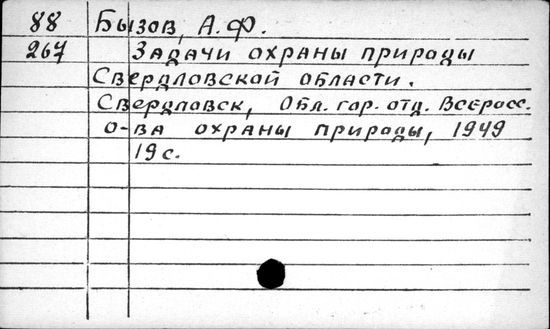 88 Бызов, А.Ф.
267 Задачи охраны природы
Свердловской области.
Свердловск, Обл. гор. отд. Всеросс.
о-ва охраны природы, 1949
19 с.